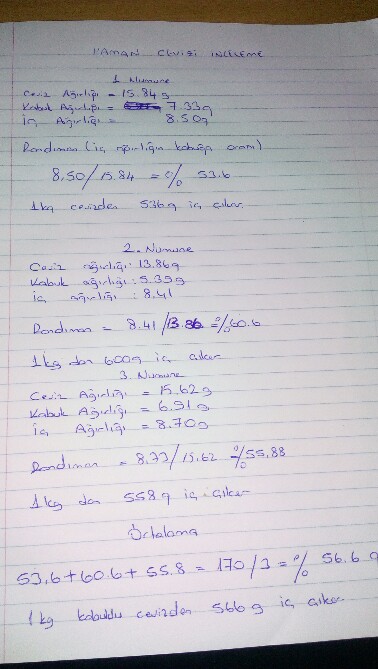 KAMAN CEVİZİ İNCELEME
1 Numune
Ceviz Ağırlığı = 15.84g
Kabuk Ağırlığı = 7.33g
İç Ağırlığı = 8.50g
Randıman (iç ağırlığın kabuğa oranı)
8.50/15.84 = % 53.6
1kg cevizden 536g iç çıkar
2. Numune
Ceviz ağırlığı: 13.86g
Kabuk ağırlığı: 5.35g
iç ağırlığı: 8.41
Randıman = 8.41/13.86 = %60.6
1kg dan 600g iç çıkar
3. Numune
Ceviz Ağırlığı = 15.62g
Kabuk Ağırlığı = 6.91g
İç Ağırlığı = 8.70g
Randıman = 8.73/15.62 = %55.88
1kg dan 558g iç çıkar
Ortalama
53.6+60.6+55.8 = 170/3 = % 56.6g
1kg kabuklu cevizden 566g iç çıkar